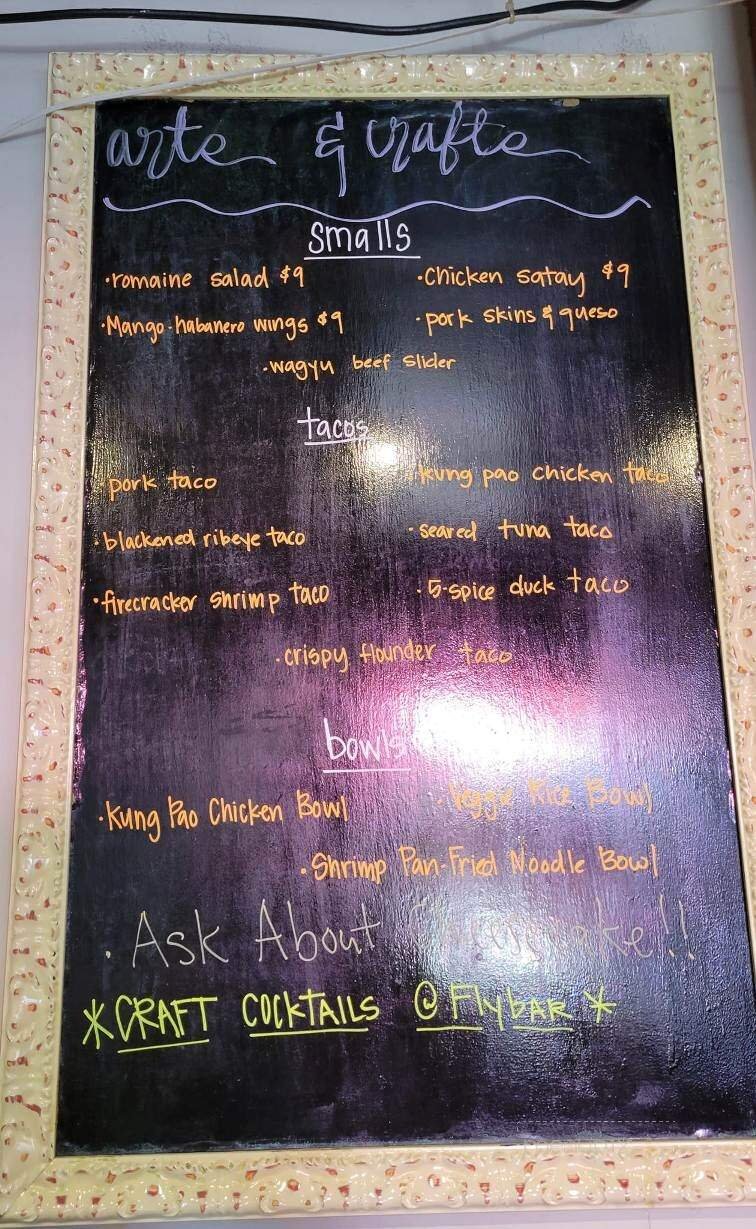 arts & crafts
smalls
·romaine salad $9 ·Chicken satay $9
·Mango-habanero wings $9 ·pork skins & queso
·wagyu beef slider
tacos
pork taco ·kung pao chicken taco
·blackened ribeye taco ·seared tuna taco
·firecracker shrimp taco ·5-spice duck taco
·crispy flounder taco
bowls
·Kung Pao Chicken Bowl ·Veggie Rice Bowl
·Shrimp Pan-Fried Noodle Bowl
·Ask About Cheesecake!!
*CRAFT COCKTAILS @ Flybar*